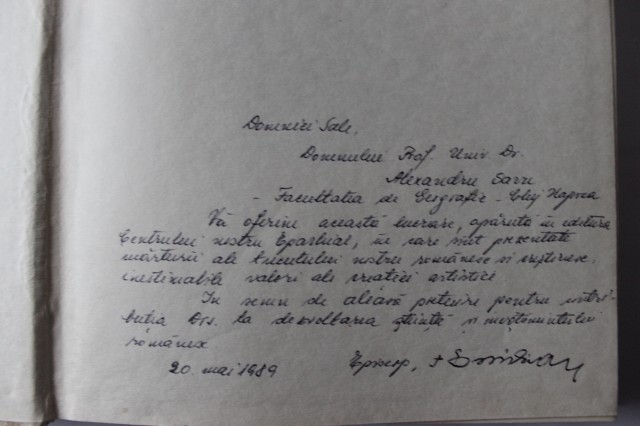 Domniei Sale,
Domnului Prof. Univ. Dr.
Alexandru Savu
- Facultatea de Geografie - Cluj Napoca
Vă oferim această lucrare, apărută în editura
Centrului nostru Eparhial, în care sînt prezentate
mărturii ale trecutului nostru românesc și creștinesc,
inestimabile valori ale creației artistice.
În semn de aleasă prețuire pentru contri-
buția Dvs. la dezvoltarea științei și învățămîntului
românesc
20. mai 1989 Episcop, +